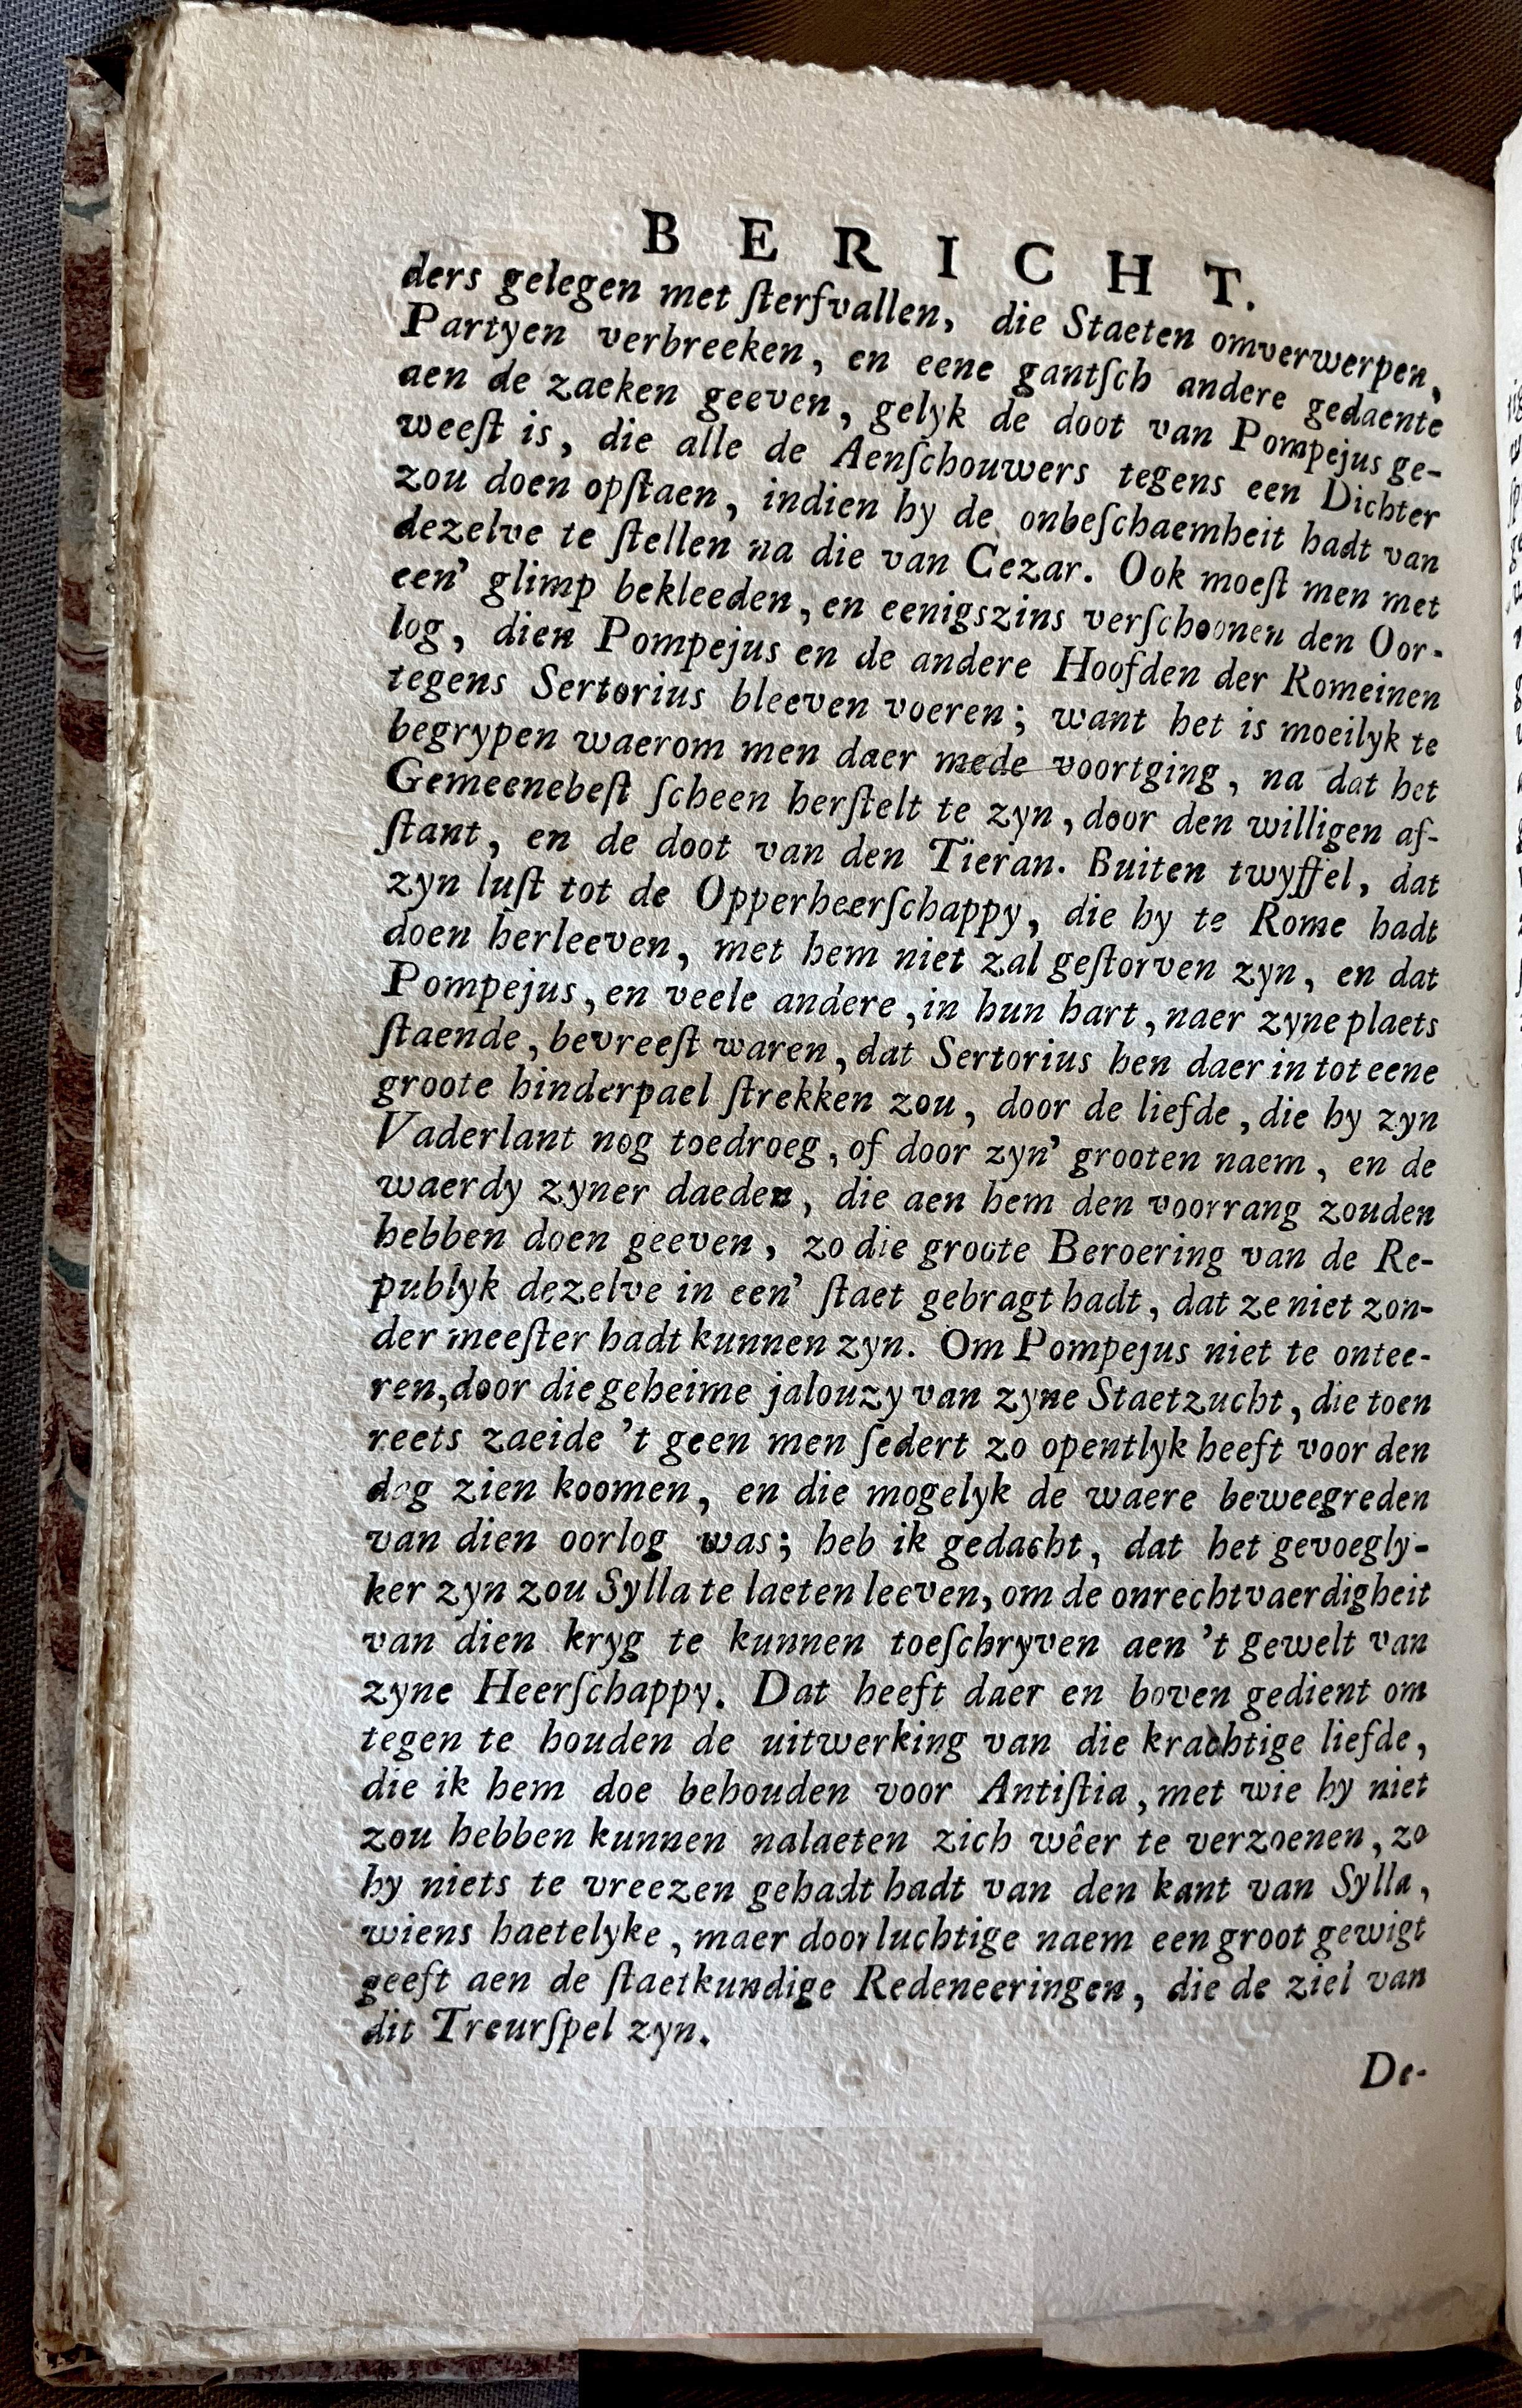 BERICHT.
ders gelegen met ſterfvallen, die Staeten omverwerpen,
Partyen verbreeken, en eene gantſch andere gedaente
aen de zaeken geeven, gelyk de doot van Pompejus ge-
weeſt is, die alle de Aenſchouwers tegens een Dichter
zou doen opſtaen, indien hy de onbeſchaemheit hadt van
dezelve te ſtellen na die van Cezar. Ook moeſt men met
een' glimp bekleeden, en eenigszins verſchoonen den Oor-
log, dien Pompejus en de andere Hoofden der Romeinen
tegens Sertorius bleeven voeren; want het is moeilyk te
begrypen waerom men daer mede voortging, na dat het
Gemeenebeſt ſcheen herſtelt te zyn, door den willigen af-
ſtant, en de doot van den Tieran. Buiten twyffel, dat
zyn luſt tot de Opperheerſchappy, die hy te Rome hadt
doen herleeven, met hem niet zal geſtorven zyn, en dat
Pompejus, en veele andere, in hun hart, naer zyne plaets
ſtaende, bevreeſt waren, dat Sertorius hen daer in tot eene
groote hinderpael ſtrekken zou, door de liefde, die hy zyn
Vaderlant nog toedroeg, of door zyn' grooten naem, en de
waerdy zyner daeden, die aen hem den voorrang zouden
hebben doen geeven, zo die groote Beroering van de Re-
publyk dezelve in een' ſtaet gebragt hadt, dat ze niet zon-
der meeſter hadt kunnen zyn. Om Pompejus niet te ontee-
ren, door die geheime jalouzy van zyne Staetzucht, die toen
reets zaeide 't geen men ſedert zo opentlyk heeft voor den
dag zien koomen, en die mogelyk de waere beweegreden
van dien oorlog was; heb ik gedacht, dat het gevoegly-
ker zyn zou Sylla te laeten leeven, om de onrechtvaerdigheit
van dien kryg te kunnen toeſchryven aen 't gewelt van
zyne Heerſchappy. Dat heeft daer en boven gedient om
tegen te houden de uitwerking van die krachtige liefde,
die ik hem doe behouden voor Antiſtia, met wie hy niet
zou hebben kunnen nalaeten zich wêer te verzoenen, zo
hy niets te vreezen gehadt hadt van den kant van Sylla,
wiens haetelyke, maer doorluchtige naem een groot gewigt
geeft aen de ſtaetkundige Redeneeringen, die de ziel van
dit Treurſpel zyn.
De-